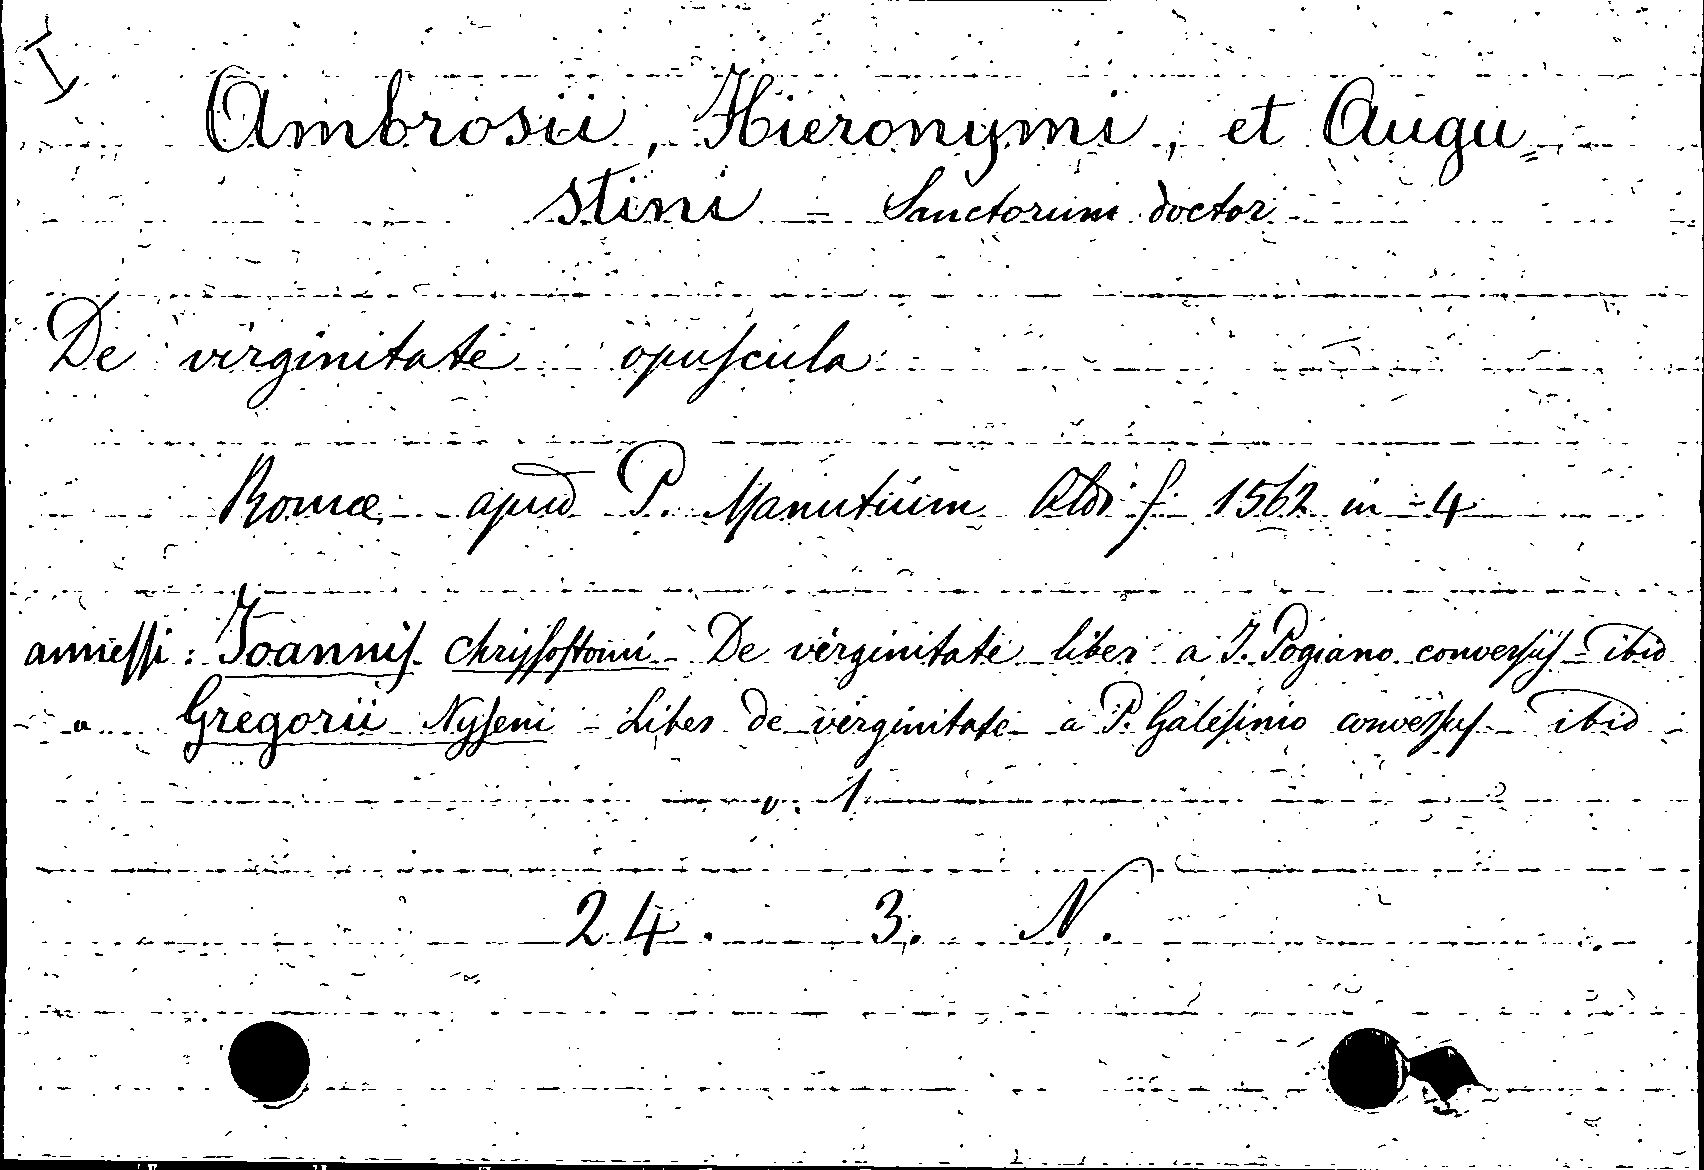 Ambrosii, Hieronymi, et Augu=
stini - Sanctorum doctor
De virginitate opuscula
Romæ apud P. Manutium Aldi f. 1562 in-4
annessi: Joannis Chrissostomi - De virginitate liber a J. Pogiano conversus - ibid
a Gregorii Nysseni - Liber de virginitate a P. Galesinio conversus - ibid
v. 1
24. 3. N.